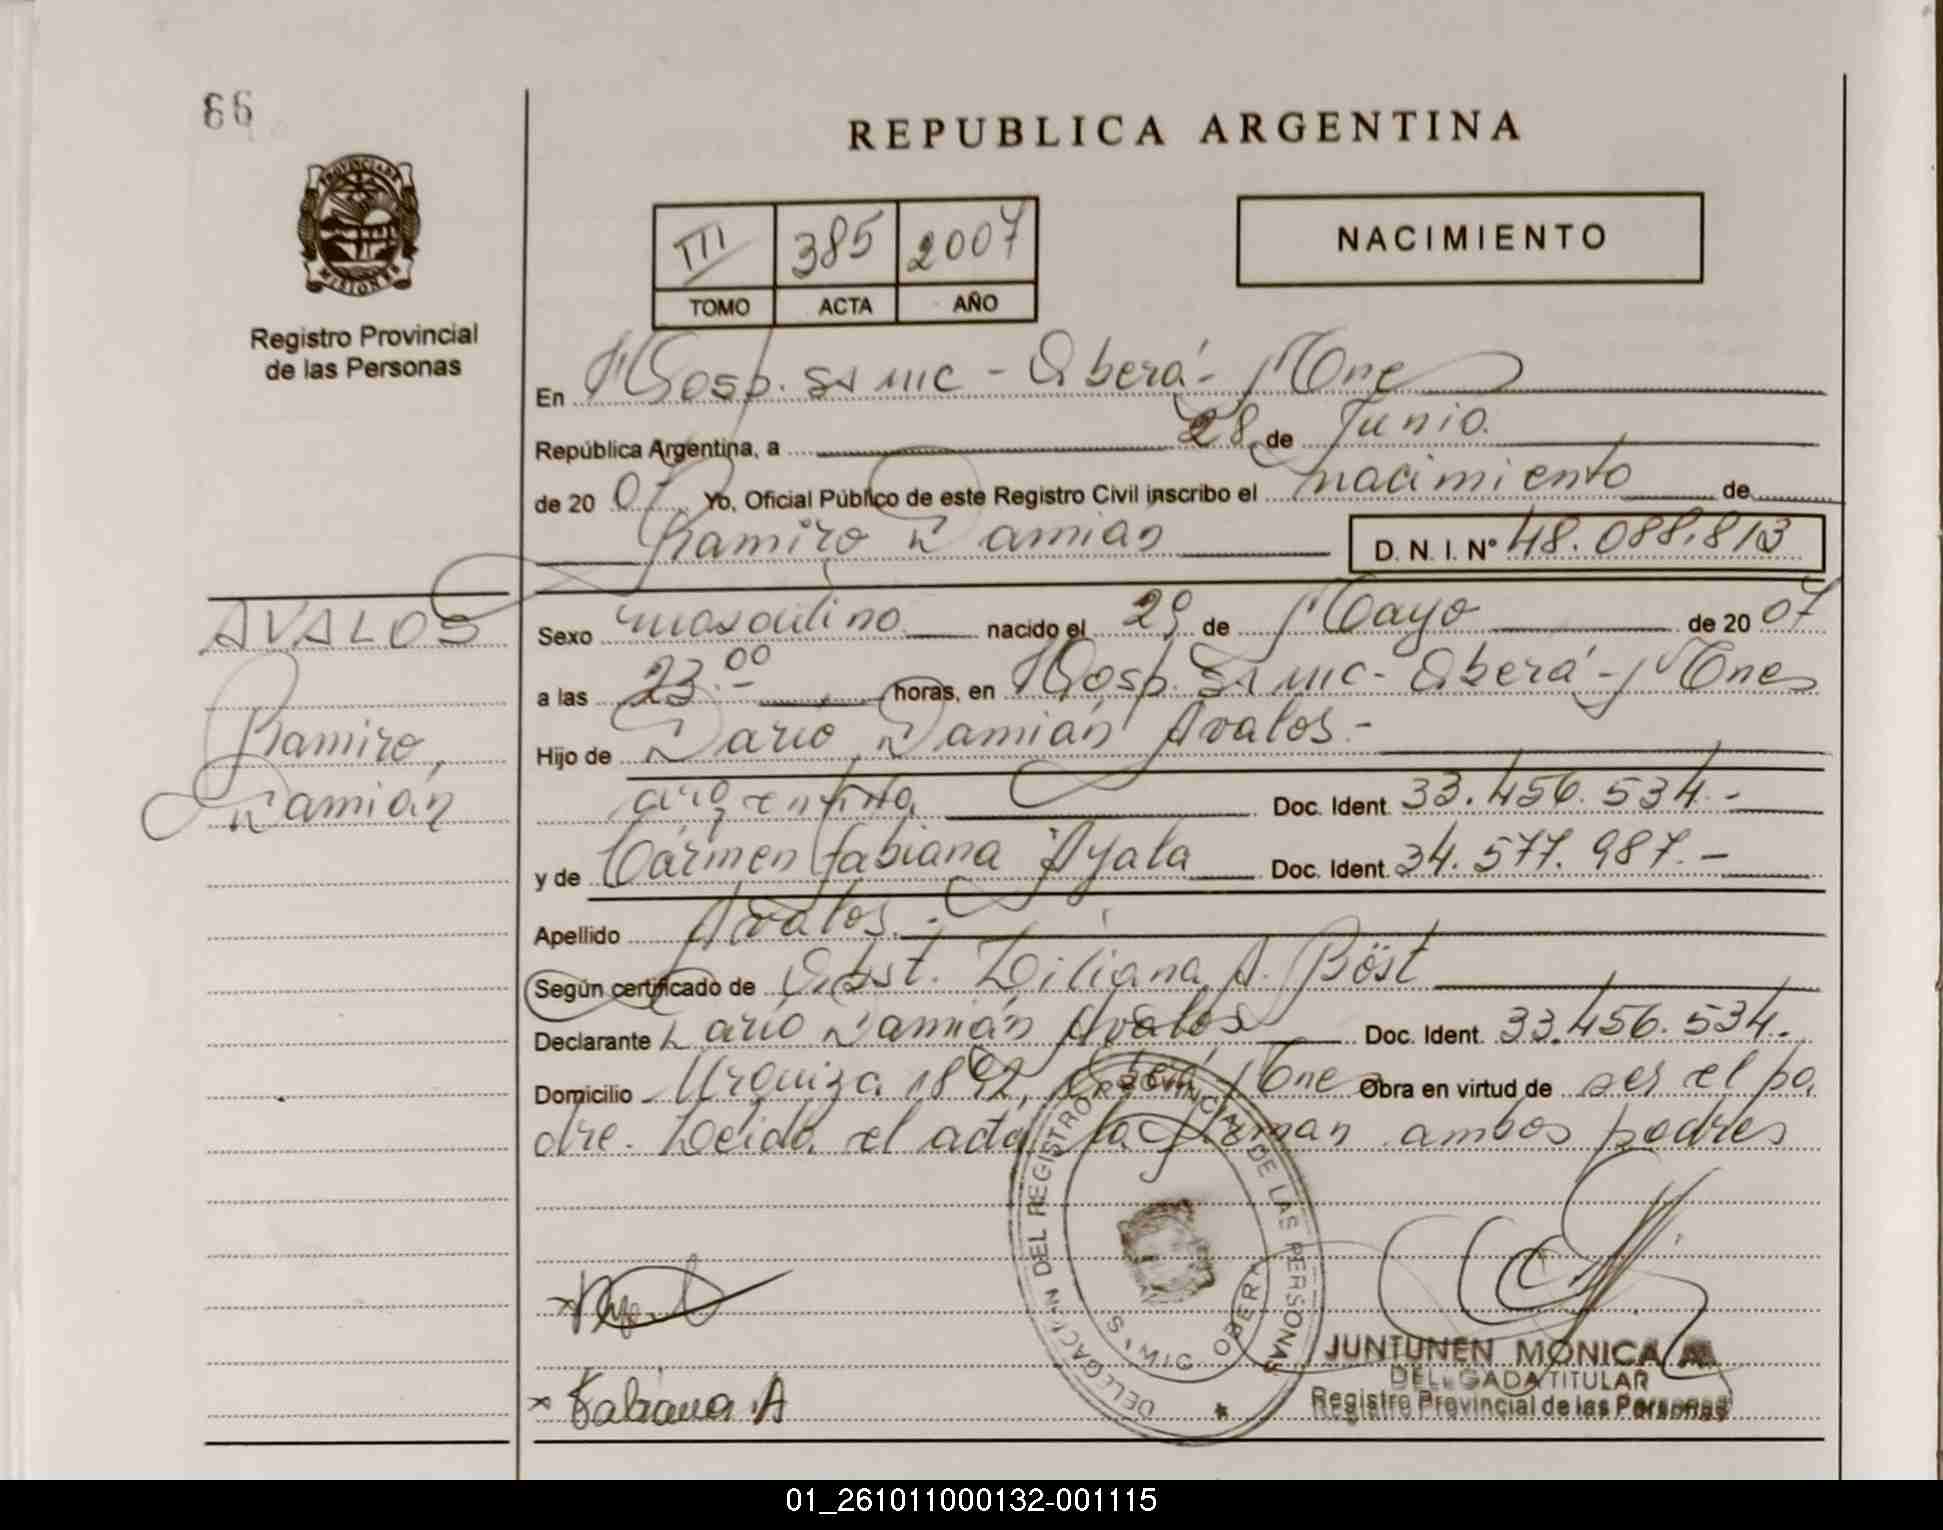 66
REPUBLICA ARGENTINA
PROVINCIA DE
MISIONES
Registro Provincial
de las Personas
III 385 2007
TOMO ACTA AÑO
NACIMIENTO
En Hosp. SAMIC - Oberá - Mnes
República Argentina, a 28 de Junio
de 20 07 Yo, Oficial Público de este Registro Civil inscribo el nacimiento de
Ramiro Damián D. N. I. Nº 48.088.813
AVALOS
Ramiro
Damián
Sexo masculino nacido el 29 de Mayo de 20 07
a las 23.00 horas, en Hosp. SAMIC - Oberá - Mnes
Hijo de Darío Damián Avalos.-
argentino Doc. Ident. 33.456.534.-
y de Carmen Fabiana Ayala Doc. Ident. 34.577.987.-
Apellido Avalos.-
Según certificado de Obst. Liliana A. Böst
Declarante Darío Damián Avalos Doc. Ident. 33.456.534.
Domicilio Urquiza 1892, Oberá, Mnes Obra en virtud de ser el pa
dre. Leída el acta la firman ambos padres
DELEGACION DEL REGISTRO PROVINCIAL DE LAS PERSONAS
OBERA
x Fabiana A
JUNTUNEN MONICA
DELEGADA TITULAR
Registro Provincial de las Personas
01_261011000132-001115